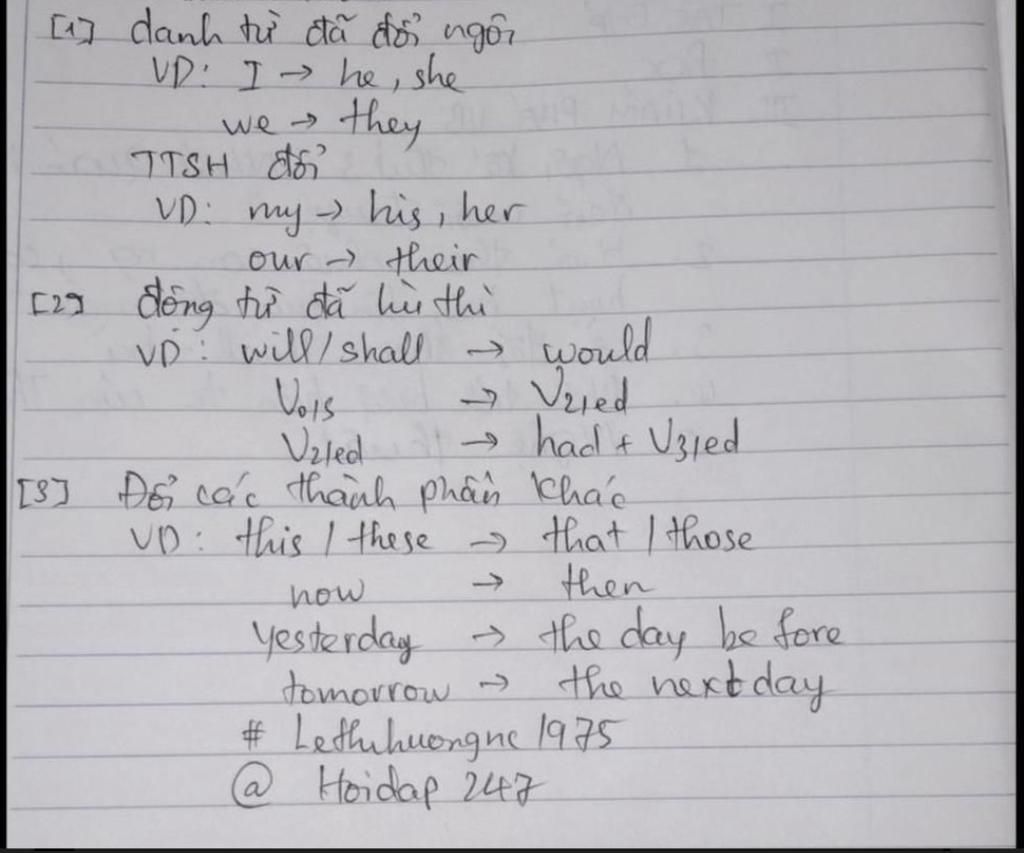 [1] danh từ đã đổi ngôi
VD: I → he, she
we → they
TTSH đổi
VD: my → his, her
our → their
[2] động từ đã lùi thì
VD: will/shall → would
Vo/s → V2/ed
V2/ed → had + V3/ed
[3] Đổi các thành phần khác
VD: this / these → that / those
now → then
yesterday → the day before
tomorrow → the next day
# Lethuhuongnc 1975
@ Hoidap 247